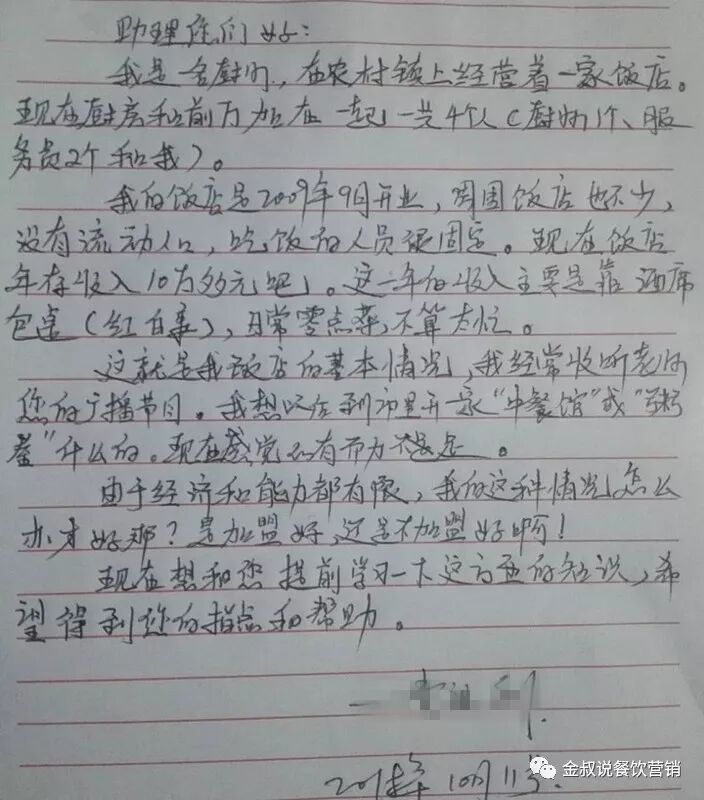 助理佬们好：
我是一名厨师，在农村镇上经营着一家饭店。
现在厨房和前方加在一起一共4个人（厨师1个、服
务员2个和我）。
我的饭店是2009年9月开业，周围饭店也不少，
没有流动人口，吃饭的人员很固定。现在饭店
年存收入10万多元吧。这一年的收入主要是靠酒席
包桌（红白事），日常零点菜，不算太忙。
这就是我饭店的基本情况，我经常收听老师
您的广播节目。我想以后到市里开一家“中餐馆”或“
”什么的。现在感觉心有而力不足。
由于经济和能力都有限，我的这种情况怎么
办才好那？是加盟好，还是不加盟好啊！
现在想和您提前学习一下这方面的知识，希
望得到您的指点和帮助。
年10月11号.
金叔说餐饮营销